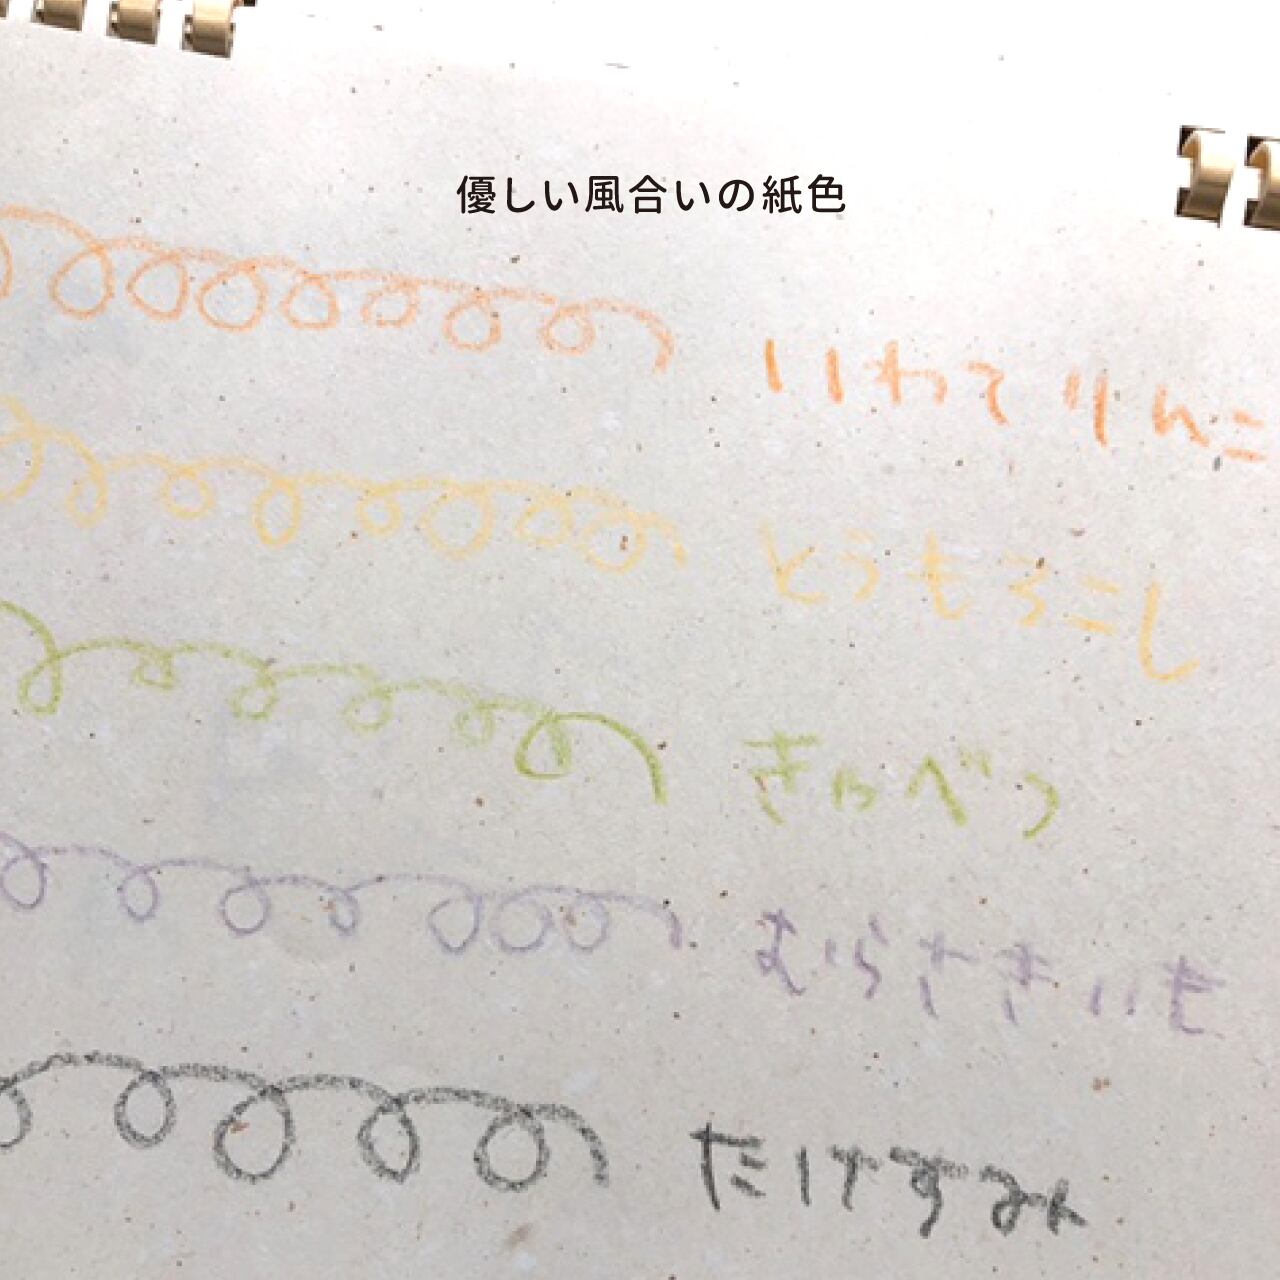 優しい風合いの紙色
いわてりんご
とうもろこし
きゃべつ
むらさきいも
たけすみ